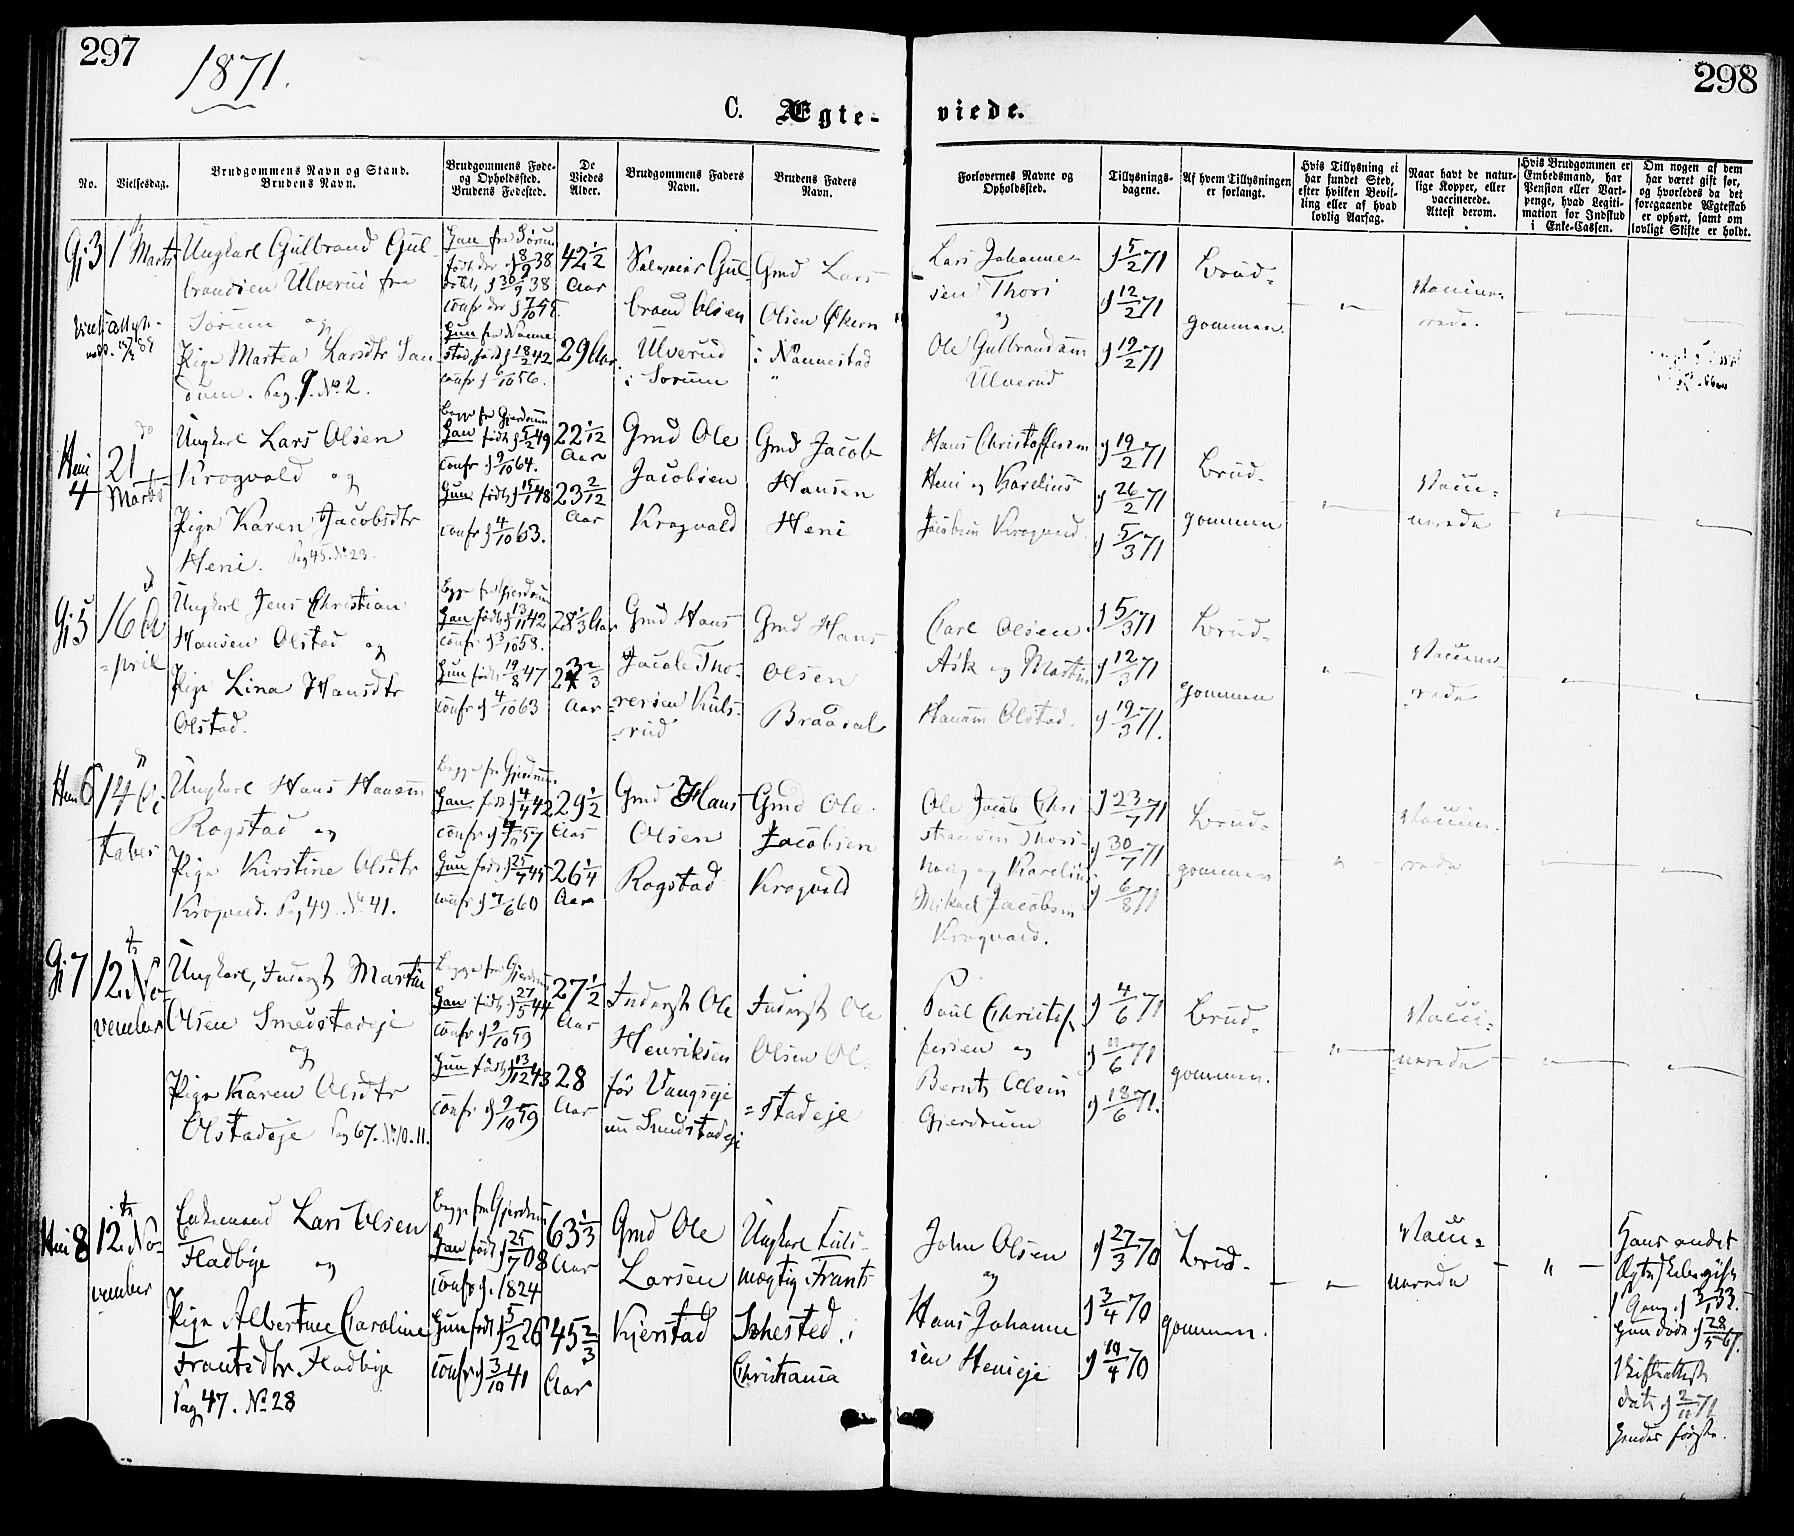 297
1871.
C. Ægte-
viede.
298
No.
Vielsesdag.
Brudgommens Navn og Stand.
Brudens Navn.
Brudgommens Føde-
og Opholdssted.
Brudens Fødested.
De
Viedes
Alder.
Brudgommens Faders
Navn.
Brudens Faders
Navn.
Forlovernes Navne og
Opholdssted.
Tillysnings-
dagene.
Af hvem Tillysningen
er forlangt.
Hvis Tillysning ei
har fundet Sted,
efter hvilken Bevil-
ling eller af hvad
lovlig Aarsag.
Naar havt de natur-
lige Kopper, eller
vaccinerede.
Attest derom.
Hvis Brudgommen er
Embedsmand, har
Pension eller Vart-
penge, hvad Legiti-
mation for Indskud
i Enke-Cassen.
Om nogen af dem
har været gift før,
og hvorledes da det
foregaaende Ægteskab
er ophørt, samt om
lovligt Skifte er holdt.
Gj 3
1 Marts
Ungkarl Gulbrand Gul-
brandsen Ulverud fra
Sørum og
Pige Martea Larsdtr San-
dum. Pag. 9. No 2.
Han fra Sørum
født den 8/9 38
døbt 30/9 38
confr den 7/10 55.
Hun fra Nanne-
stad født 18/2 42
confr 5/10 56.
42 1/2
Aar
29 Aar.
Gul-
brand Olsen
Ulverud
i Sørum
Gmd Lars
Olsen Økern
i Nannestad
Lars Johanne-
sen Thori
og
Ole Gulbrandsen
Ulverud
5/2 71
12/2 71
19/2 71
Brud-
gommen.
Vaccine-
rede.
Heni
4
21
Marts
Ungkarl Lars Olsen
Krogvold og
Pige Karen Jacobsdtr
Heni. Pag 45. No 23.
Begge fra Gjerdrum
Han født 5/2 49
confr 9/10 64.
Hun født 15/1 48
confr 4/10 63.
22 1/12
Aar
23 2/12
Aar
Gmd Ole
Jacobsen
Krogvold
Gmd Jacob
Hansen
Heni
Hans Christoffersen
Heni og Karelius
Jacobsen Krogvold
19/2 71
26/2 71
5/3 71
Brud-
gommen
Vacci-
nerede
Gj 5
16 A-
pril
Ungkarl Jens Christian
Hansen Olstad og
Pige Lina Hansdtr
Olstad.
Begge fra Gjerdrum
Han født 13/11 42
confr 3/10 58.
Hun født 19/8 47
confr 4/10 63
28 1/3 Aar
2/3
Aar
Gmd Hans
Jacob Tho-
resen Kuls-
rud
Gmd Hans
Olsen
Braadal
Carl Olsen
Ask og Martin
Hansen Olstad.
5/3 71
12/3 71
19/3 71.
Brud-
gommen
Vaccine-
rede
Heni 6
14 Oc-
tober
Ungkarl Hans Hansen
Rogstad og
Pige Kirstine Olsdtr
Krogvold. Pag 49 No 41.
Begge fra Gjerdrum
Han født 4/4 42
confr 4/10 57
Hun født 25/7 45
confr 7/6 60
29 1/2
Aar
26 1/4
Aar
Gmd Hans
Olsen
Rogstad
Gmd Ole
Jacobsen
Krogvold
Ole Jacob Chri
stensen Thors-
haug og Karelius
Mikael Jacobsen
Krogvold.
23/7 71
30/7 71
6/8 71
Brud-
gommen
Vaccine-
rede
Gj 7
12 No-
vember
Ungkarl, Inderst Martin
Olsen Smedstadeje
og
Pige Karen Olsdtr
Olstadeje Pag 67. No 10. 11.
Begge fra Gjerdrum
Han født 27/5 44
confr 9/10 59
Hun født 13/12 43
confr 9/10 59
27 1/2
Aar
28
Aar
Inderst Ole
Henriksen
før Vangseje
nu Smedstadeje
Inderst Ole
Olsen Ol-
stadeje
Paul Christof-
fersen og
Bernt Olsen
Gjerdrum
4/6 71
11/6 71
18/6 71.
Brud-
gommen.
Vacci-
nerede
Heni 8
12 No-
vember
Enkemand Lars Olsen
Fladbye og
Pige Albertine Caroline
Frantsdtr Fladbye
Pag 47. No 28
Begge fra Gjerdrum
Han født 25/7 08
confr. 1824
Hun født 5/2 26
confr 3/10 41
63 1/3
Aar
45 2/3
Aar
Gmd Ole
Larsen
Kjerstad
Ungkarl Fuld-
mægtig Frants
Sehested i
Christiania
John Olsen
og
Hans Johanne
sen Henieje
27/3 70
3/4 70
10/4 70
Brud-
gommen.
Vacci-
nerede
Hans andet
Ægteskab gift
1 Gang 3/1 33.
Hun døde 28/5 67.
Skifteattest
dat. 2/11 71
Hendes første.